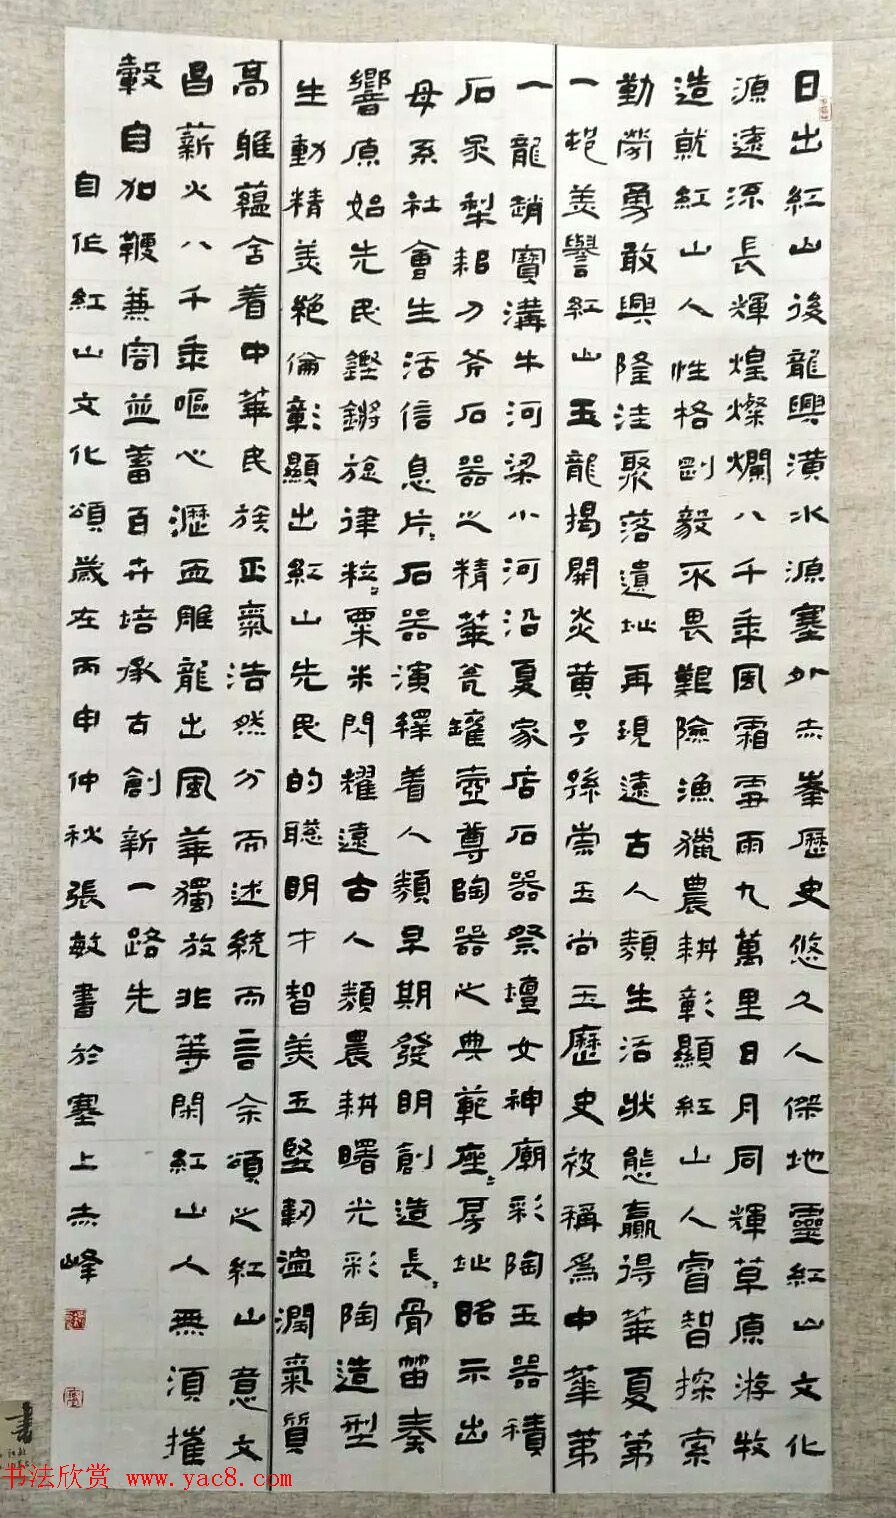 日出紅山後龍興潢水源塞外赤峯歷史悠久人傑地靈紅山文化
源遠流長輝煌燦爛八千年風霜雪雨九萬里日月同輝草原游牧
造就紅山人性格剛毅不畏艱險漁獵農耕彰顯紅山人睿智探索
勤勞勇敢興隆洼聚落遺址再現遠古人類生活狀態贏得華夏第
一村美譽紅山玉龍揭開炎黃子孫崇玉尚玉歷史被稱為中華第
一龍趙寶溝牛河梁小河沿夏家店石器祭壇女神廟彩陶玉器積
石冢犁耜刀斧石器之精華瓮罐壺尊陶器之典範座座房址昭示出
母系社會生活信息片片石器演繹着人類早期發明創造長長骨笛奏
響原始先民鏗鏘旋律粒粒粟米閃耀遠古人類農耕曙光彩陶造型
生動精美絕倫彰顯出紅山先民的聰明才智美玉堅韌溫潤氣質
高雅蘊含着中華民族正氣浩然分而述統而言余頌之紅山意文
昌薪火八千年嘔心瀝血雕龍出風華獨放非等閑紅山人無須摧
轂自加鞭兼容並蓄百卉培承古創新一路先
自作紅山文化頌歲在丙申仲秋張敏書於塞上赤峰
書
书法欣赏 www.yac8.com